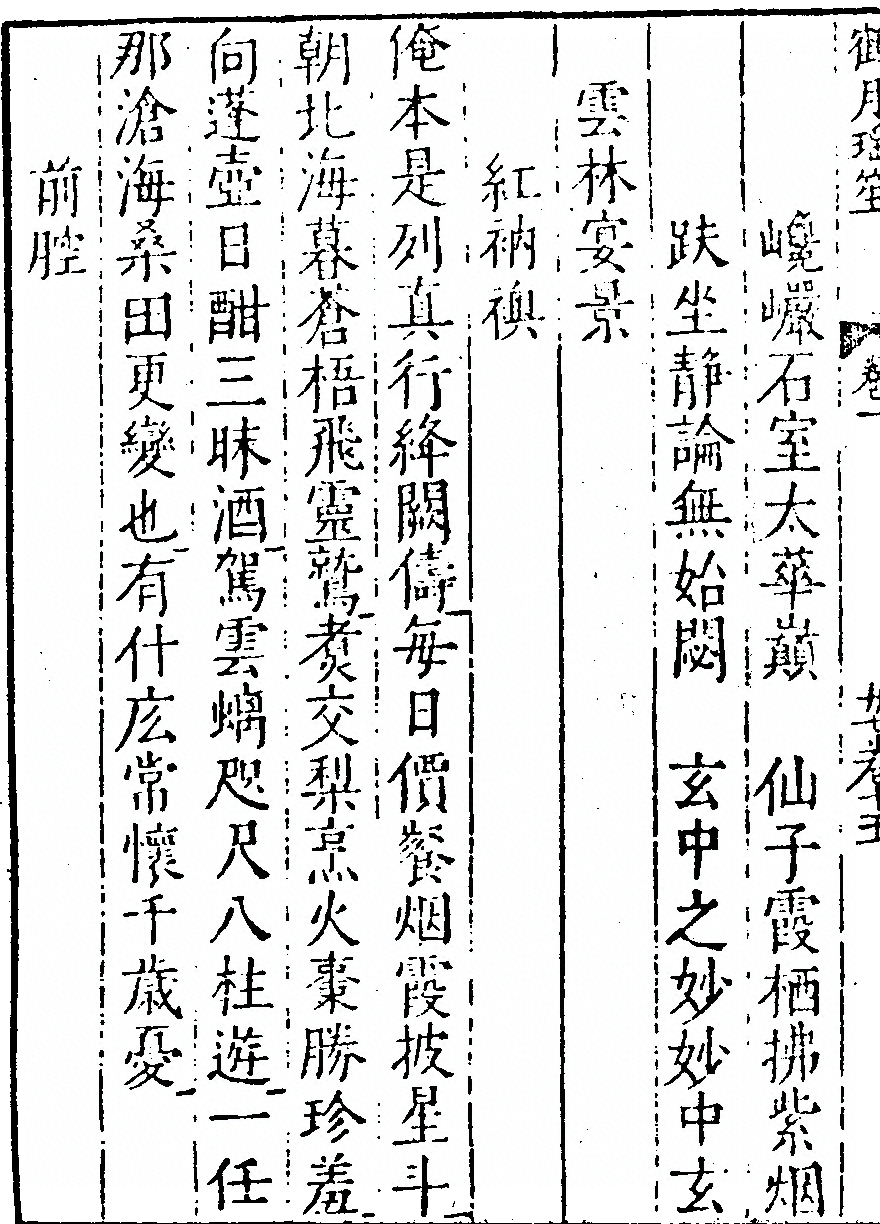 鶴月瑤笙 卷一
巉巖石室太華巔 仙子霞栖拂紫烟
趺坐靜論無始閟 玄中之妙妙中玄
雲林宴景
紅衲襖
俺本是列真行絳闕儔每日價餐烟霞披星斗
朝北海暮蒼梧飛靈鷲煑交梨烹火棗勝珍羞
向蓬壺日酣三昧酒駕雲螭咫尺八柱遊一任
那滄海桑田更變也有什庅常懷千歲憂
前腔